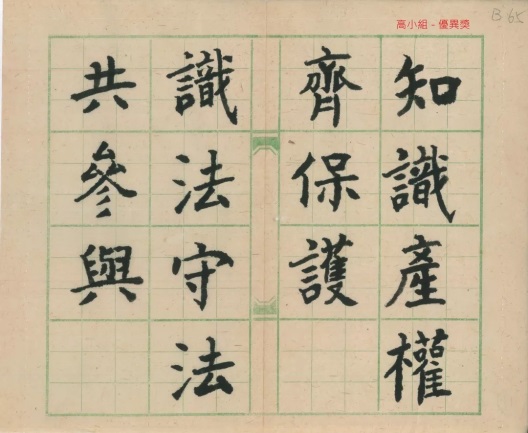 高小組 - 優異獎
B 65
知識產權
齊保護
識法守法
共參與